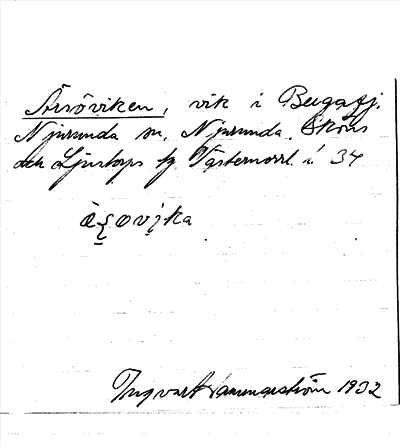 Årsöviken, vik i Bergafj.
Njurunda sn, Njurunda, Sköns
och Ljustorps tg Västernorrl. l. 34
àsovika
Ingvart 1932